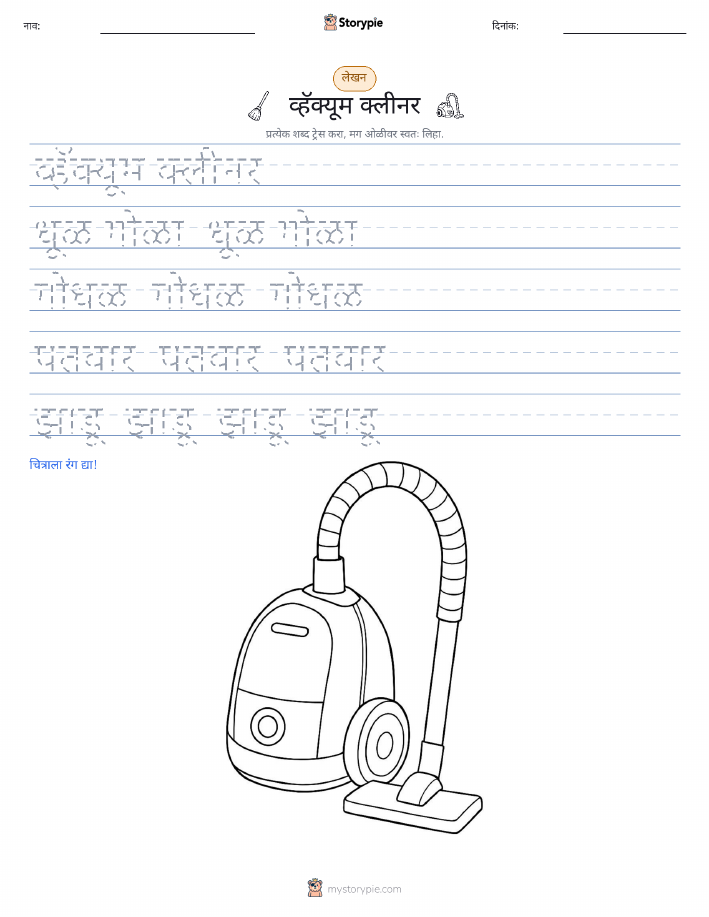 नाव:
Storypie
दिनांक:
लेखन
व्हॅक्यूम क्लीनर
प्रत्येक शब्द ट्रेस करा, मग ओळीवर स्वतः लिहा.
व्हॅक्यूम क्लीनर
धूळ गोळा धूळ गोळा
गोंधळ गोंधळ गोंधळ
पतवार पतवार पतवार
झाडू झाडू झाडू झाडू
चित्राला रंग द्या!
mystorypie.com